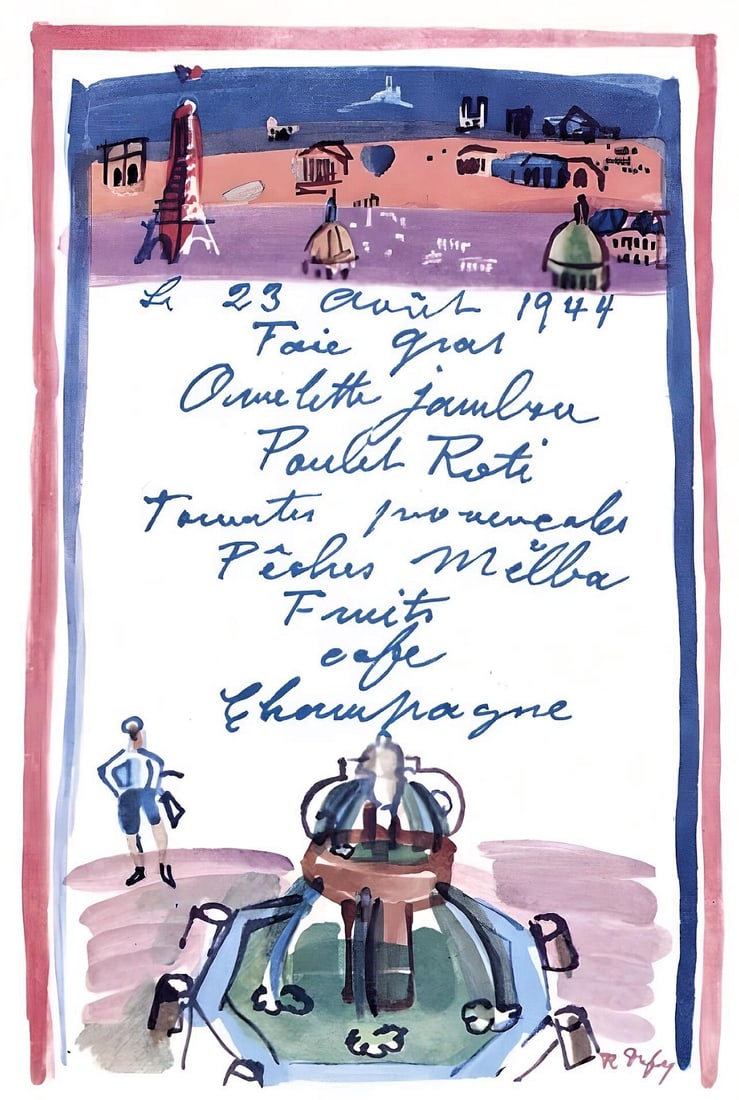 Le 23 Août 1944
Foie gras
Omelette jambon
Poulet Roti
Tomates provencales
Pêches Mĕlba
Fruits
cafe
Champagne
R Dufy